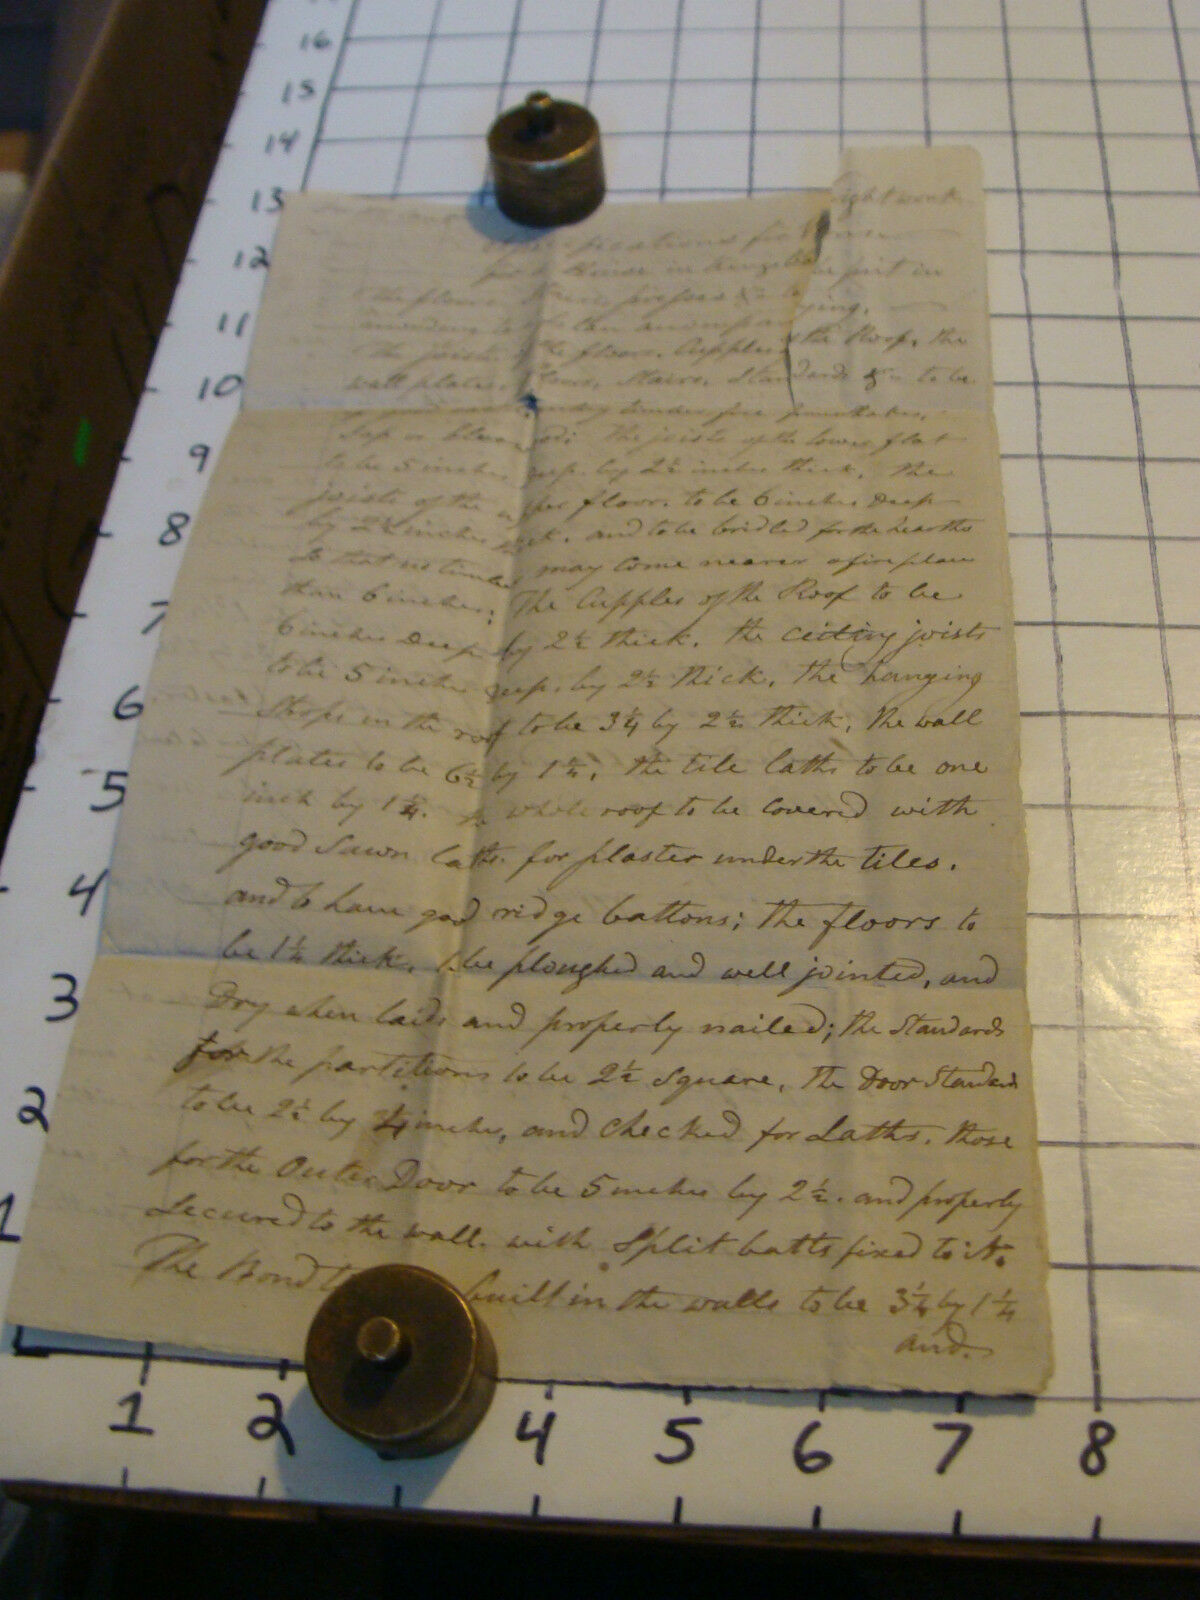 16
15
14
13
12
11
10
9
8
7
6
5
4
3
2
1
ight work
Specifications for
for a House in put in
ying.
The joists of the floors. Cupples of the Roof, the
wall plates, floors, Stairs, Standards &c to be
timber free from
Sap or The joists of the lower flat
to be 5 inches deep. by 2½ inches thick, the
joists of the upper floor. to be 6 inches Deep
by 2½ inches thick. and to be bridled for the hearths
So that no timber may Come nearer a fire place
than 6 inches; The Cupples of the Roof to be
6 inches Deep by 2½ thick. the ceiling joists
to be 5 inches deep. by 2½ thick, the hanging
Straps in the roof to be 3¼ by 2½ thick, the wall
plates to be 6½ by 1¼, the tile laths to be one
inch by 1¼. the whole roof to be Covered with
good Sawn laths. for plaster under the tiles.
and to have good ridge battons; the floors to
be 1¼ thick, be ploughed and well jointed, and
Dry when laid and properly nailed; the Standards
for the partitions to be 2½ Square, the Door Standards
to be 2½ by inches, and Checked for Laths. those
for the Outer Door to be 5 inches by 2½. and properly
Secured to the wall. with Split batts fixed to it.
The Bond built in the walls to be 3¼ by 1¼
and
1 2 4 5 6 7 8